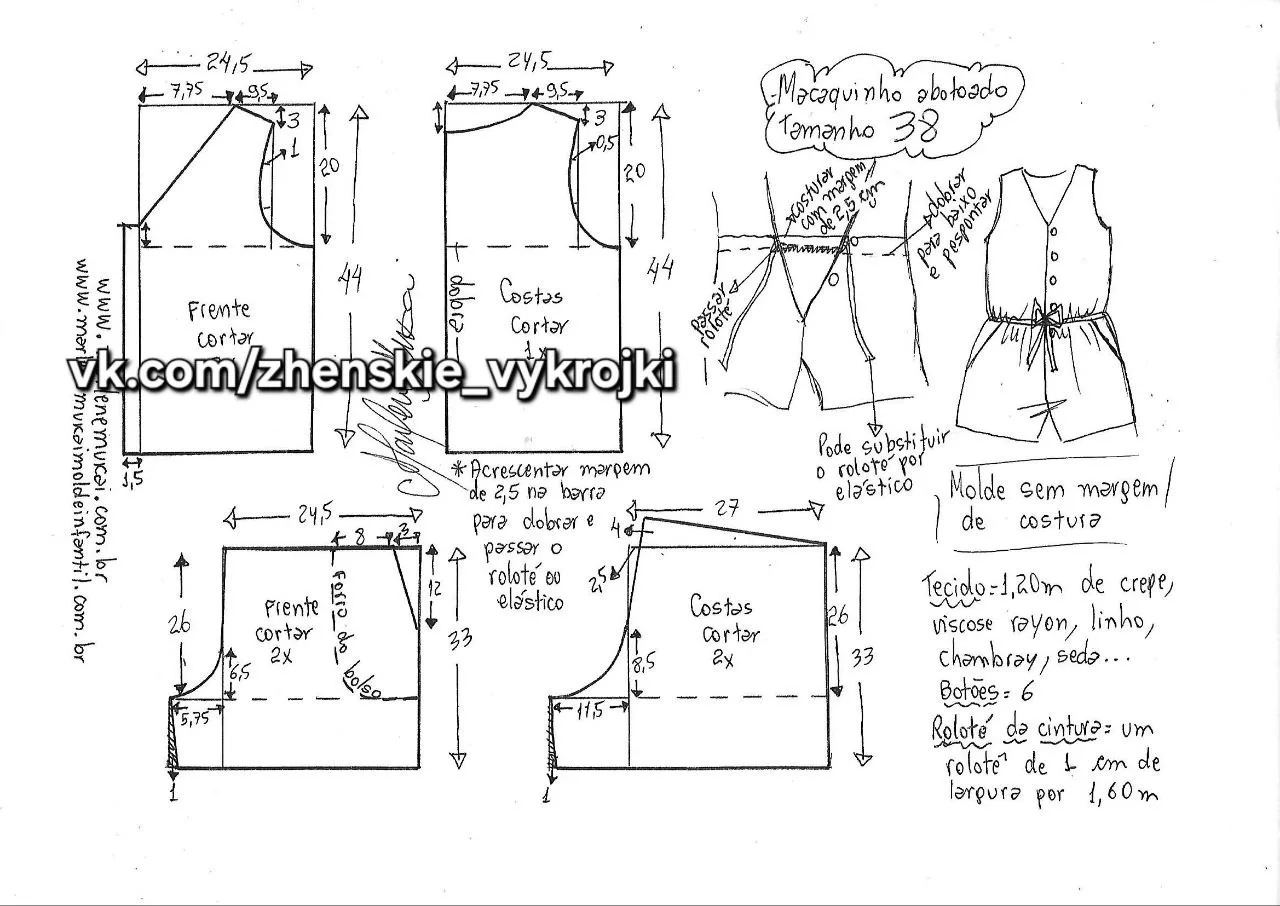 24,5
7,75
9,5
3
1
20
44
Frente
cortar
1,5
24,5
7,75
9,5
3
0,5
20
44
dobra
Costas
Cortar
1x
-Macaquinho abotoado
Tamanho 38
costurar
com margem
de 2,5 cm
dobrar
para baixo
e pespontar
passar
roloté
Pode substituir
o roloté por
elástico
vk.com/zhenskie_vykrojki
*Acrescentar margem
de 2,5 na barra
para dobrar e
passar o
roloté ou
elástico
24,5
8
3
12
26
33
Frente
cortar
2x
Forro do bolso
6,5
5,75
1
27
4
2,5
26
33
Costas
cortar
2x
8,5
11,5
1
Molde sem margem
de costura
Tecido=1,20m de crepe,
viscose rayon, linho,
chambray, seda...
Botões= 6
Roloté da cintura= um
roloté de 1 cm de
largura por 1,60m